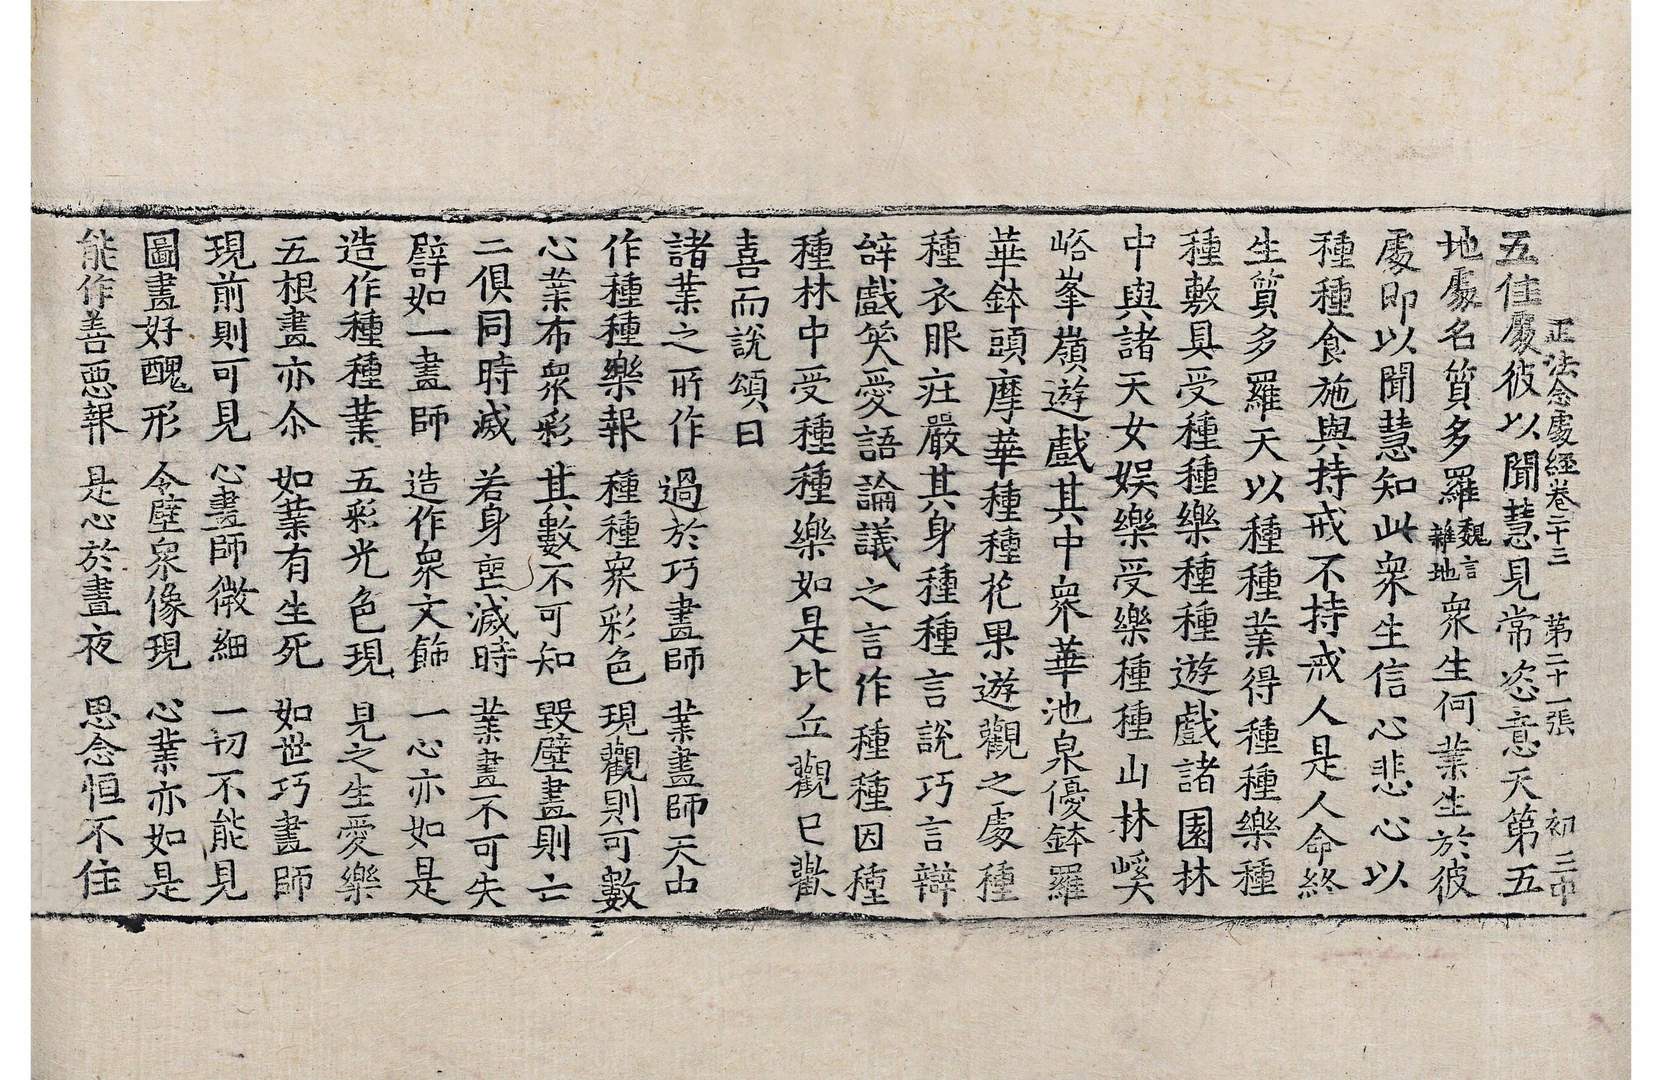 正法念處經卷二十三 第二十一張 初 三巾
五住處彼以聞慧見常恣意天第五
地處名質多羅魏言雜地衆生何業生於彼
處即以聞慧知此衆生信心悲心以
種種食施與持戒不持戒人是人命終
生質多羅天以種種業得種種樂種
種敷具受種種樂種種遊戲諸園林
中與諸天女娱樂受樂種種山林峪
峪峯嶺遊戲其中衆華池泉優鉢羅
華鉢頭摩華種種花果遊觀之處種
種衣服莊嚴其身種種言說巧言辯
辞戲笑愛語論議之言作種種因種
種林中受種種樂如是比丘觀已歡
喜而說頌曰
諸業之所作 過於巧畫師 業畫師天中
作種種樂報 種種衆彩色 現觀則可數
心業布衆彩 其數不可知 毀壁畫則亡
二俱同時滅 若身喪滅時 業畫不可失
譬如一畫師 造作衆文飾 一心亦如是
造作種種業 五彩光色現 見之生愛樂
五根畫亦尒 如業有生死 如世巧畫師
現前則可見 心畫師微細 一切不能見
圖畫好醜形 令壁衆像現 心業亦如是
能作善惡報 是心於晝夜 思念恒不住